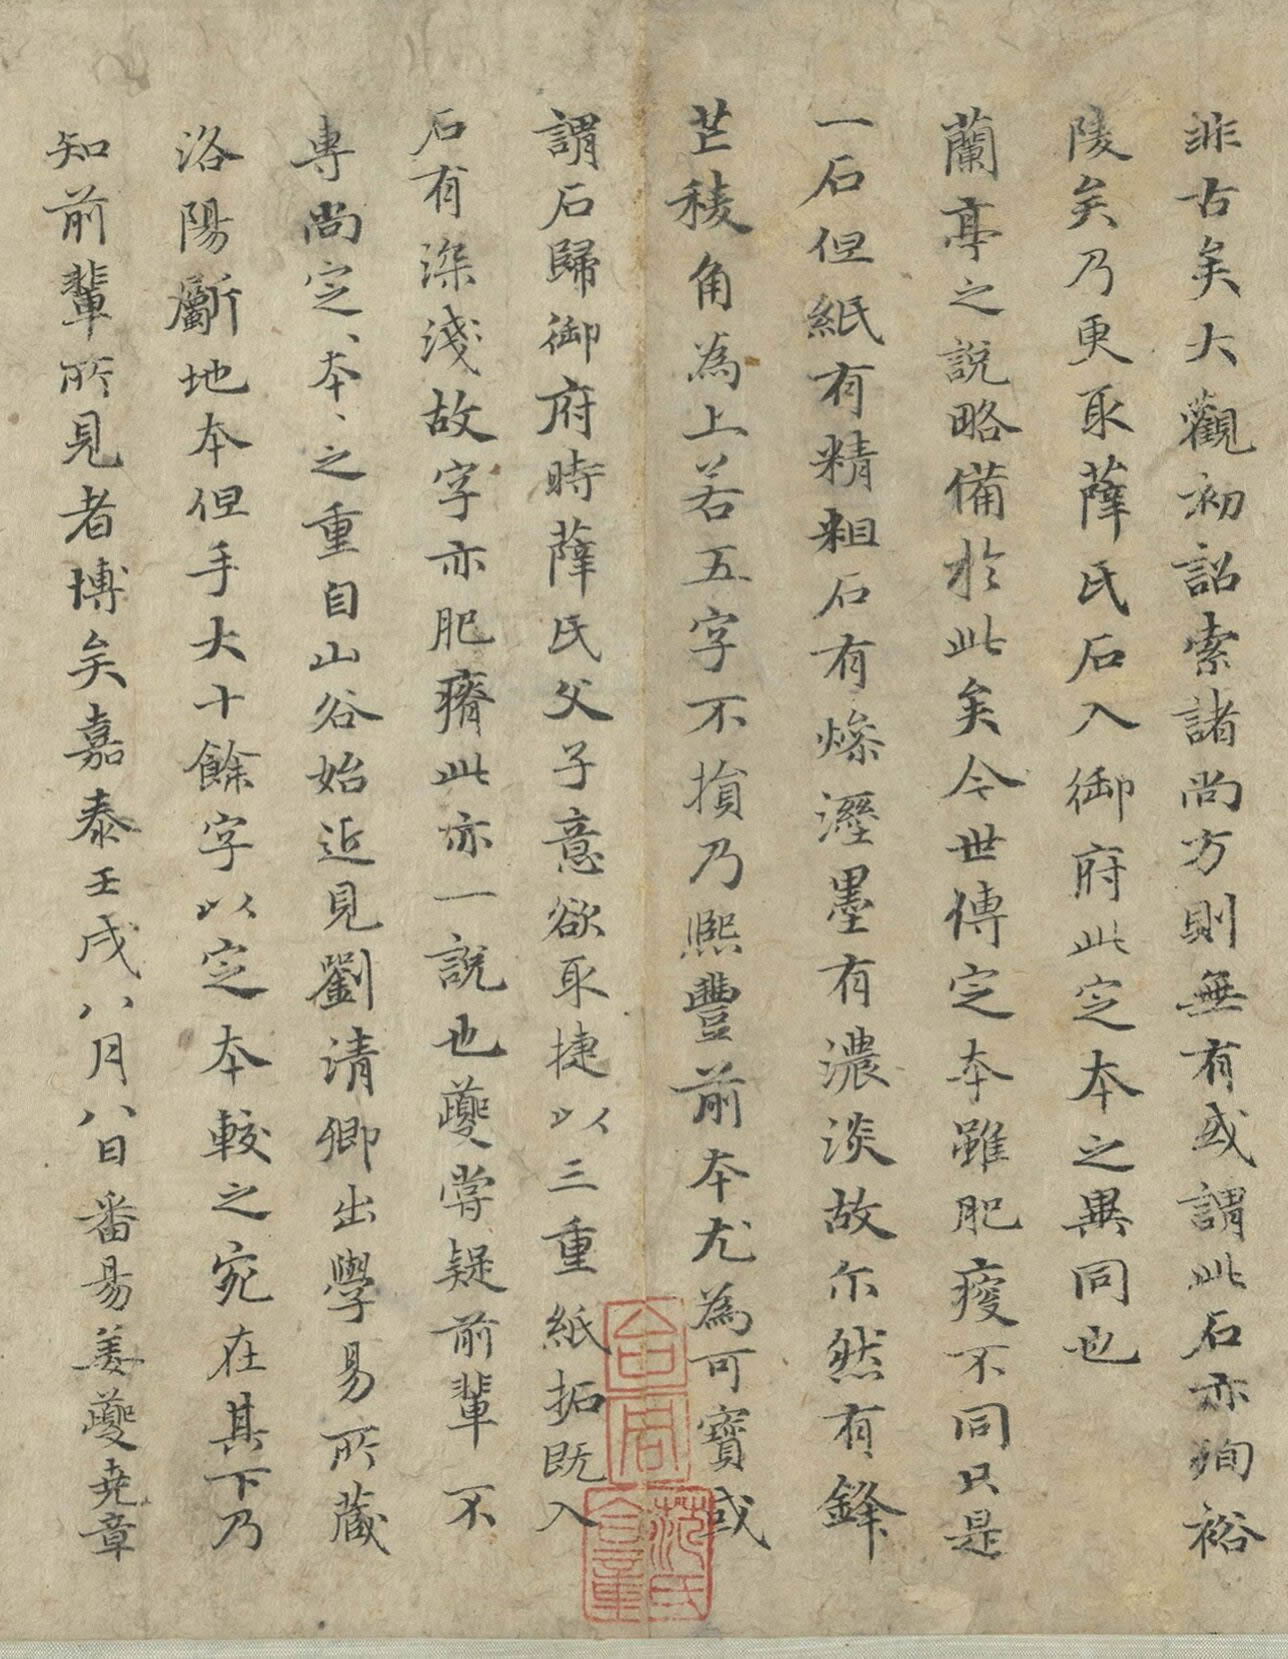 非古矣大觀初詔索諸尚方則無有或謂此石亦殉裕
陵矣乃更取薛氏石入御府此定本之異同也
蘭亭之說略備於此矣今世傳定本雖肥瘦不同只是
一石但紙有精粗石有燥溼墨有濃淡故尓然有鋒
芒稜角為上若五字不損乃熙豐前本尤為可寶或
謂石歸御府時薛氏父子意欲取捷以三重紙拓既入
石有深淺故字亦肥瘠此亦一說也夔嘗疑前輩不
專尚定、本、之重自山谷始近見劉清卿出學易所藏
洛陽斸地本但手大十餘字以定本較之宛在其下乃
知前輩所見者博矣嘉泰壬戌八月八日番昜姜夔堯章